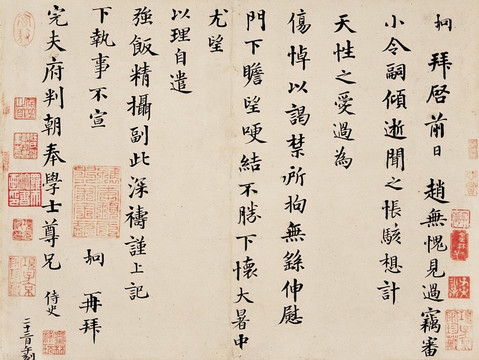 坰 拜啓前日 趙無愧見過竊審
小令嗣傾逝聞之悵駭想計
天性之愛過為
傷悼以謁禁所拘無繇伸慰
門下瞻望哽結不勝下懷大暑中
尤望
以理自遣
強飯精攝副此深禱謹上記
下執事不宣
坰 再拜
完夫府判朝奉學士尊兄 侍史